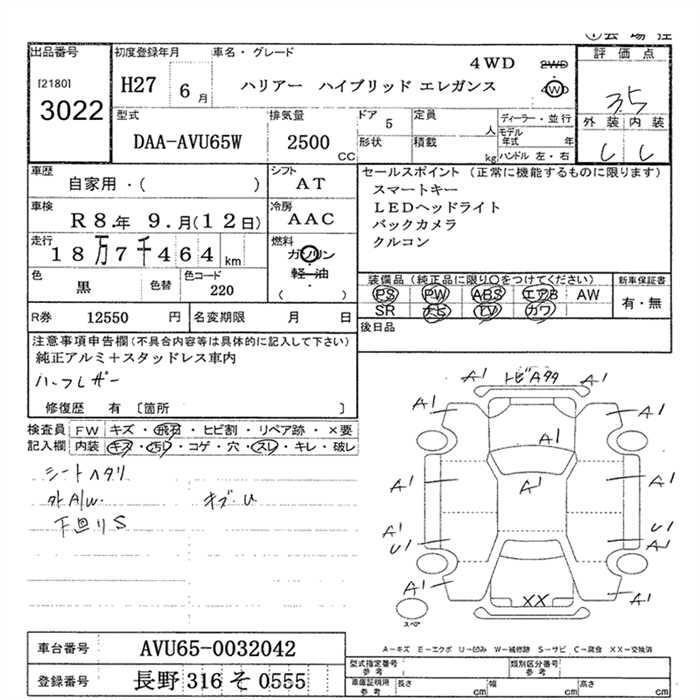 出品番号 初度登録年月 車名・グレード 評価点
[2180] 3022 H27 6月 ハリアー ハイブリッド エレガンス 4WD 2WD 4WD 3.5
型式 排気量 ドア 5 定員 人 ディーラー・並行 外装 内装
DAA-AVU65W 2500 CC 形状 積載 kg モデル年式 年 ハンドル 左・右 し し
車歴 シフト セールスポイント (正常に機能するものに限ります)
自家用・( ) AT スマートキー
車検 冷房 LEDヘッドライト
R8.年 9.月(12日) AAC バックカメラ
走行 燃料 クルコン
18万7千464km ガソリン
軽・油
( )
色 黒 色替 色コード 220
装備品 (純正品に限り〇をつけてください) 新車保証書
PS PW ABS エアB AW 有・無
SR ナビ TV カワ
R券 12550 円 名変期限 月 日 後日品
注意事項申告欄(不具合内容等は具体的に記入して下さい)
純正アルミ+スタッドレス車内
ハーフレザー
修復歴 有 [箇所 ]
検査員 FW キズ・飛石・ヒビ割・リペア跡・×要
記入欄 内装 キズ・汚レ・コゲ・穴・スレ・キレ・破レ
シートヘタリ
外A/W. キズU
下回りS
A1 トビAタタ A1
A1 A1
A1
A1 A1 A1
A1 U1
U1 A1
A1 XX A1
スペア
A-キズ E-エクボ U-凹み W-補修跡 S-サビ C-腐食 XX-交換済
車台番号 AVU65-0032042
登録番号 長野 316 そ 0555
型式指定番号 参考 類別区分番号 参考
車庫証明用 参考 長さ cm 幅 cm 高さ cm